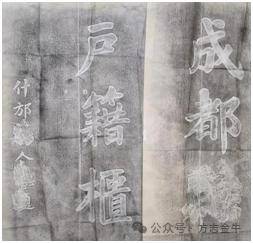 成都
户籍櫃
什邡 人
公众号：方志金牛